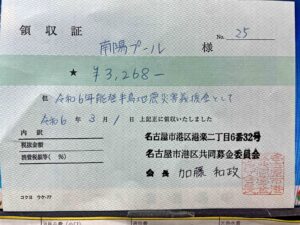 領収証
No. 25
南陽プール 様
★ ¥3,268-
但 令和6年能登半島地震災害義援金として
令和6年3月1日 上記正に領収いたしました
内訳
税抜金額
消費税額等( %)
名古屋市港区港楽二丁目6番32号
名古屋市港区共同募金委員会
会長 加藤 和政
コクヨ ウケ-77